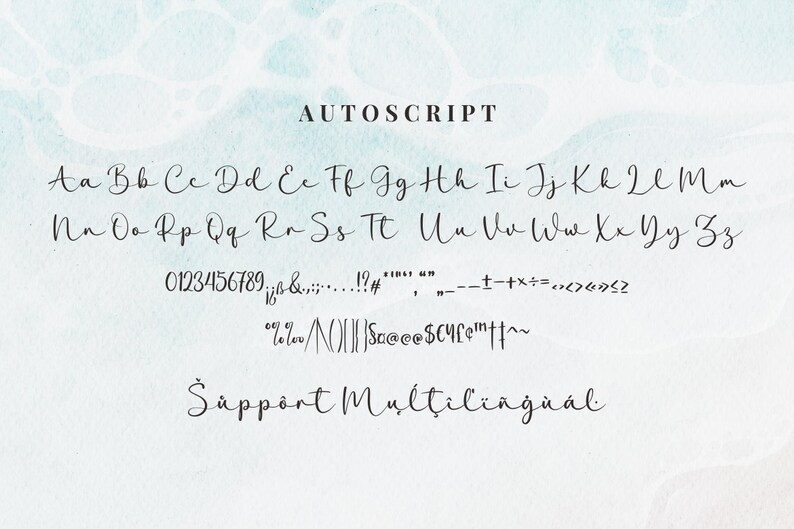 AUTOSCRIPT
Aa Bb Cc Dd Ee Ff Gg Hh Ii Jj Kk Ll Mm
Nn Oo Pp Qq Rr Ss Tt Uu Vv Ww Xx Yy Zz
0123456789¡¿ß&.,:;·•…!?#*'"‘’‚“”„_–—±−+×÷=‹›<>«»≤≥
°%‰/|\()[]{}§¤@©®$€¥£¢™†‡^~
Šůppôrt Mụĺţîľïñģùáŀ